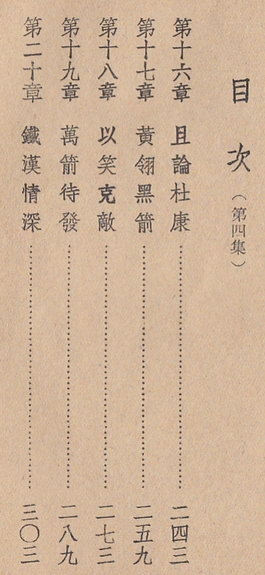 目次（第四集）
第十六章　且論杜康……………………二四三
第十七章　黃翎黑箭……………………二五九
第十八章　以笑克敵……………………二七三
第十九章　萬箭待發……………………二八九
第二十章　鐵漢情深……………………三〇三